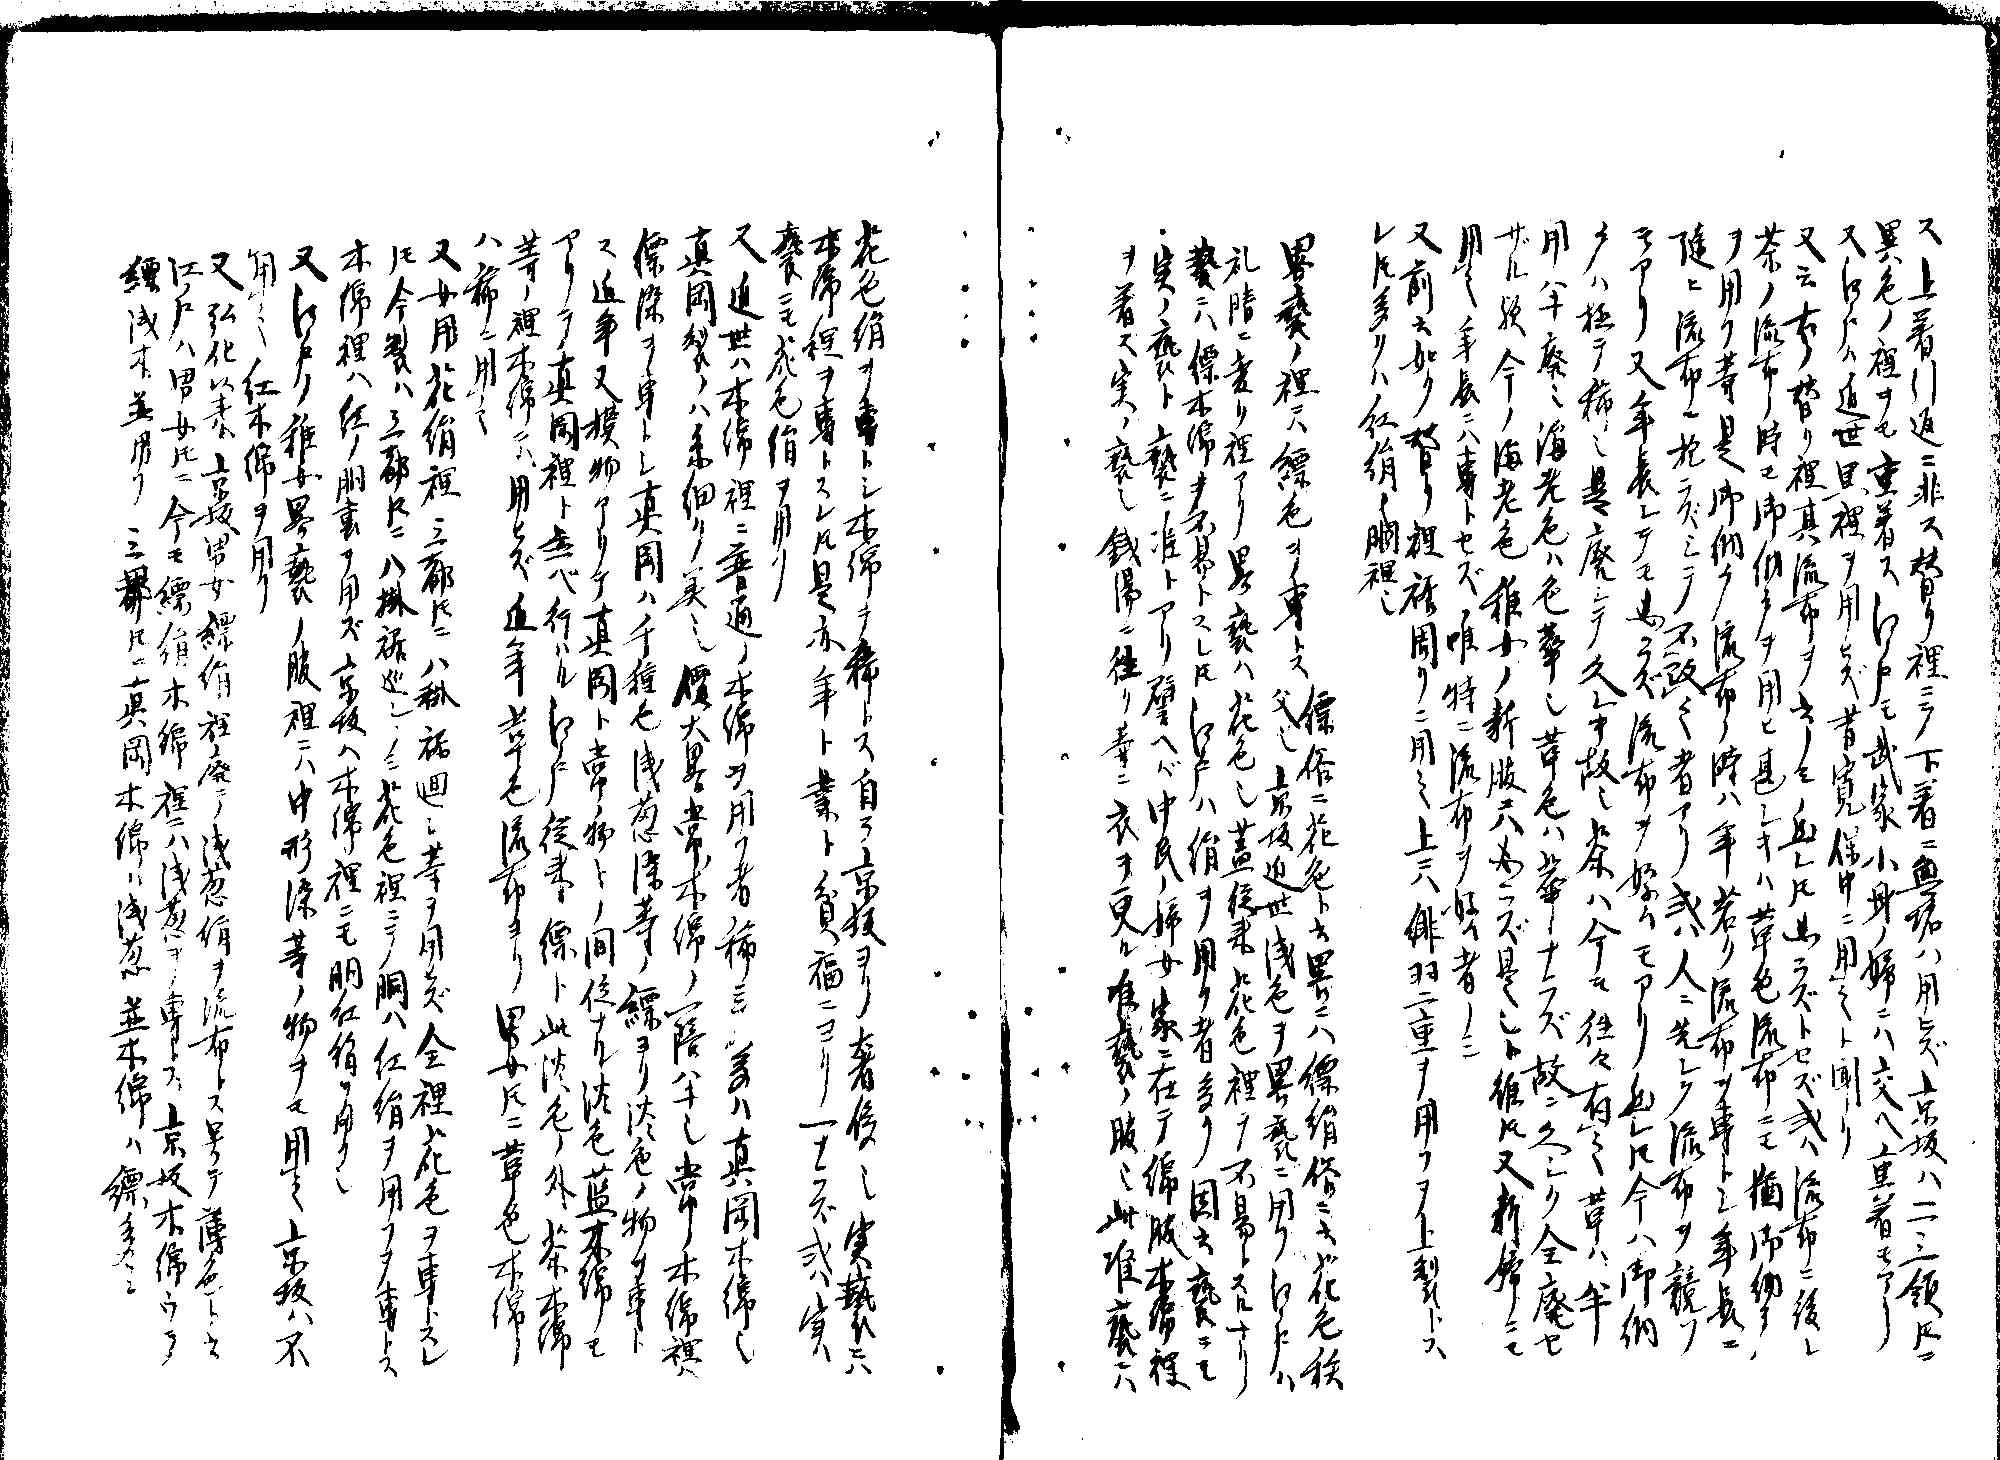 ス上着計返ニ非ス替リ裡ニテ下着ニ無垢ハ用ヒズ京坂ハ一二三領トモニ
異色ノ裡ヲモ重着ス江戸モ武家小身ノ婦ニハ交ヘ重着モアリ
又江戸ハ近世黒裡ヲ用ヒズ昔寛保中ニ用之ト聞リ
又云右ノ替リ裡其流布ヲ云ノミ然レトモ必ラズトセズ或ハ流布ニ後レ
茶ノ流布ノ時モ御納戸ヲ用ヒ甚シキハ革色流布ニモ猶御納戸
ヲ用フ等是御納戸流布ノ時ハ年若リ流布ヲ専トシ年長ニ
随ヒ流布ニ拘ラズシテ不改之者アリ或ハ人ニ先レク流布ヲ競フ
モアリ又年長シテモ必ラズ流布ヲ好ムモアリ然レトモ今ハ御納
戸ハ極テ稀也是廃シテ久シキ故也茶ハ今モ往々有之革ハ半
用半廃也海老色ハ色華也革色ハ華ナラズ故ニ久シク全廃セ
ザル歟今ノ海老色稚女ノ新服ニハ必ラズ是也ト雖トモ又新婦ニモ
用之年長ニハ専トセズ唯特ニ流布ヲ好ム者ノミ
又前云如ク替リ裡裾周リニ用之上ニハ緋羽二重ヲ用フヲ上製トス
レトモ多クハ紅絹ノ胴裡也
畧褻ノ裡ニハ縹色ヲ専トス 縹俗ニ花色ト云畧ニハ縹絹俗ニ云花色秩
父也 京坂近世浅色ヲ畧褻ニ用フ江戸ハ
礼晴ニ変リ裡アリ畧褻ハ花色也蓋従来花色裡ヲ不易トスルナリ
褻ニハ縹木綿ヲ不易トスレトモ江戸ハ絹ヲ用フ者多シ因云褻ニモ
実ノ褻ト褻ニ准トアリ譬ヘバ中民ノ婦女家ニ在テ綿服木綿裡
ヲ着ス実ノ褻也銭湯ニ往リ等ニ衣ヲ更ル准褻ノ服也此准褻ニハ
花色絹ヲ専トシ木綿ヲ稀トス自ラ京坂ヨリ奢侈也実褻ニハ
木綿裡ヲ専トスレトモ是亦年ト業ト貧福ニヨリ一ナラズ或ハ実
褻ニモ花色絹ヲ用フ
又近世ハ木綿裡ニ普通ノ木綿ヲ用フ者稀ニシ多ハ真岡木綿也
真岡製ノハ糸細クノ美也價大畧常木綿ノ一倍半也常ノ木綿裡ハ
縹染ヲ専トシ真岡ハ千種色浅葱染等ノ縹ヨリ淡色ノ物ヲ専ト
ス近年又摸物アリテ真岡ト常ノ物トノ間位ナル淡色藍木綿モ
アリテ真岡裡ト並ベ行ハル江戸従来縹ト此淡色ノ外茶木綿
等ノ裡木綿ニハ用ヒズ近年革色流布ヨリ男女トモニ革色木綿
ハ稀ニ用之
又女用花絹裡三都トモニ八掛裾廻シ等ヲ用ヒズ全裡花色ヲ専トスレ
トモ今製ハ三都トモニ八掛裾廻シノミ花色裡ニテ胴ハ紅絹ヲ用フヲ専トス
木綿裡ハ紅ノ胴裏ヲ用ズ京坂ハ木綿裡ニモ胴紅絹ヲ用フ也
又江戸ノ稚女畧褻ノ服裡ニハ中形染等ノ物ヲモ用之京坂ハ不
用之紅木綿ヲ用フ
又弘化以来京坂男女縹絹裡廃テ浅葱絹ヲ流布トス号テ薄色ト云
江戸ハ男女トモニ今モ縹絹木綿裡ニハ浅葱ヲ専トス京坂木綿ウラ
縹浅木並用フ三都トモニ真岡木綿ハ浅葱並木綿ハ縹多シ